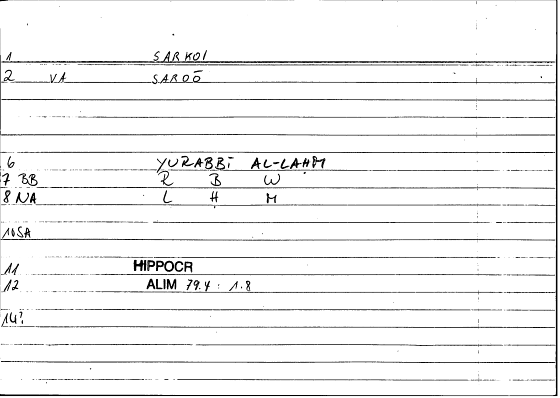 1 SARKOI
2 VA SAROŌ
6 YURABBĪ AL-LAHM
7 BB R B W
8 NA L H M
10 SA
11 HIPPOCR
12 ALIM 79.4 : 1.8
14?